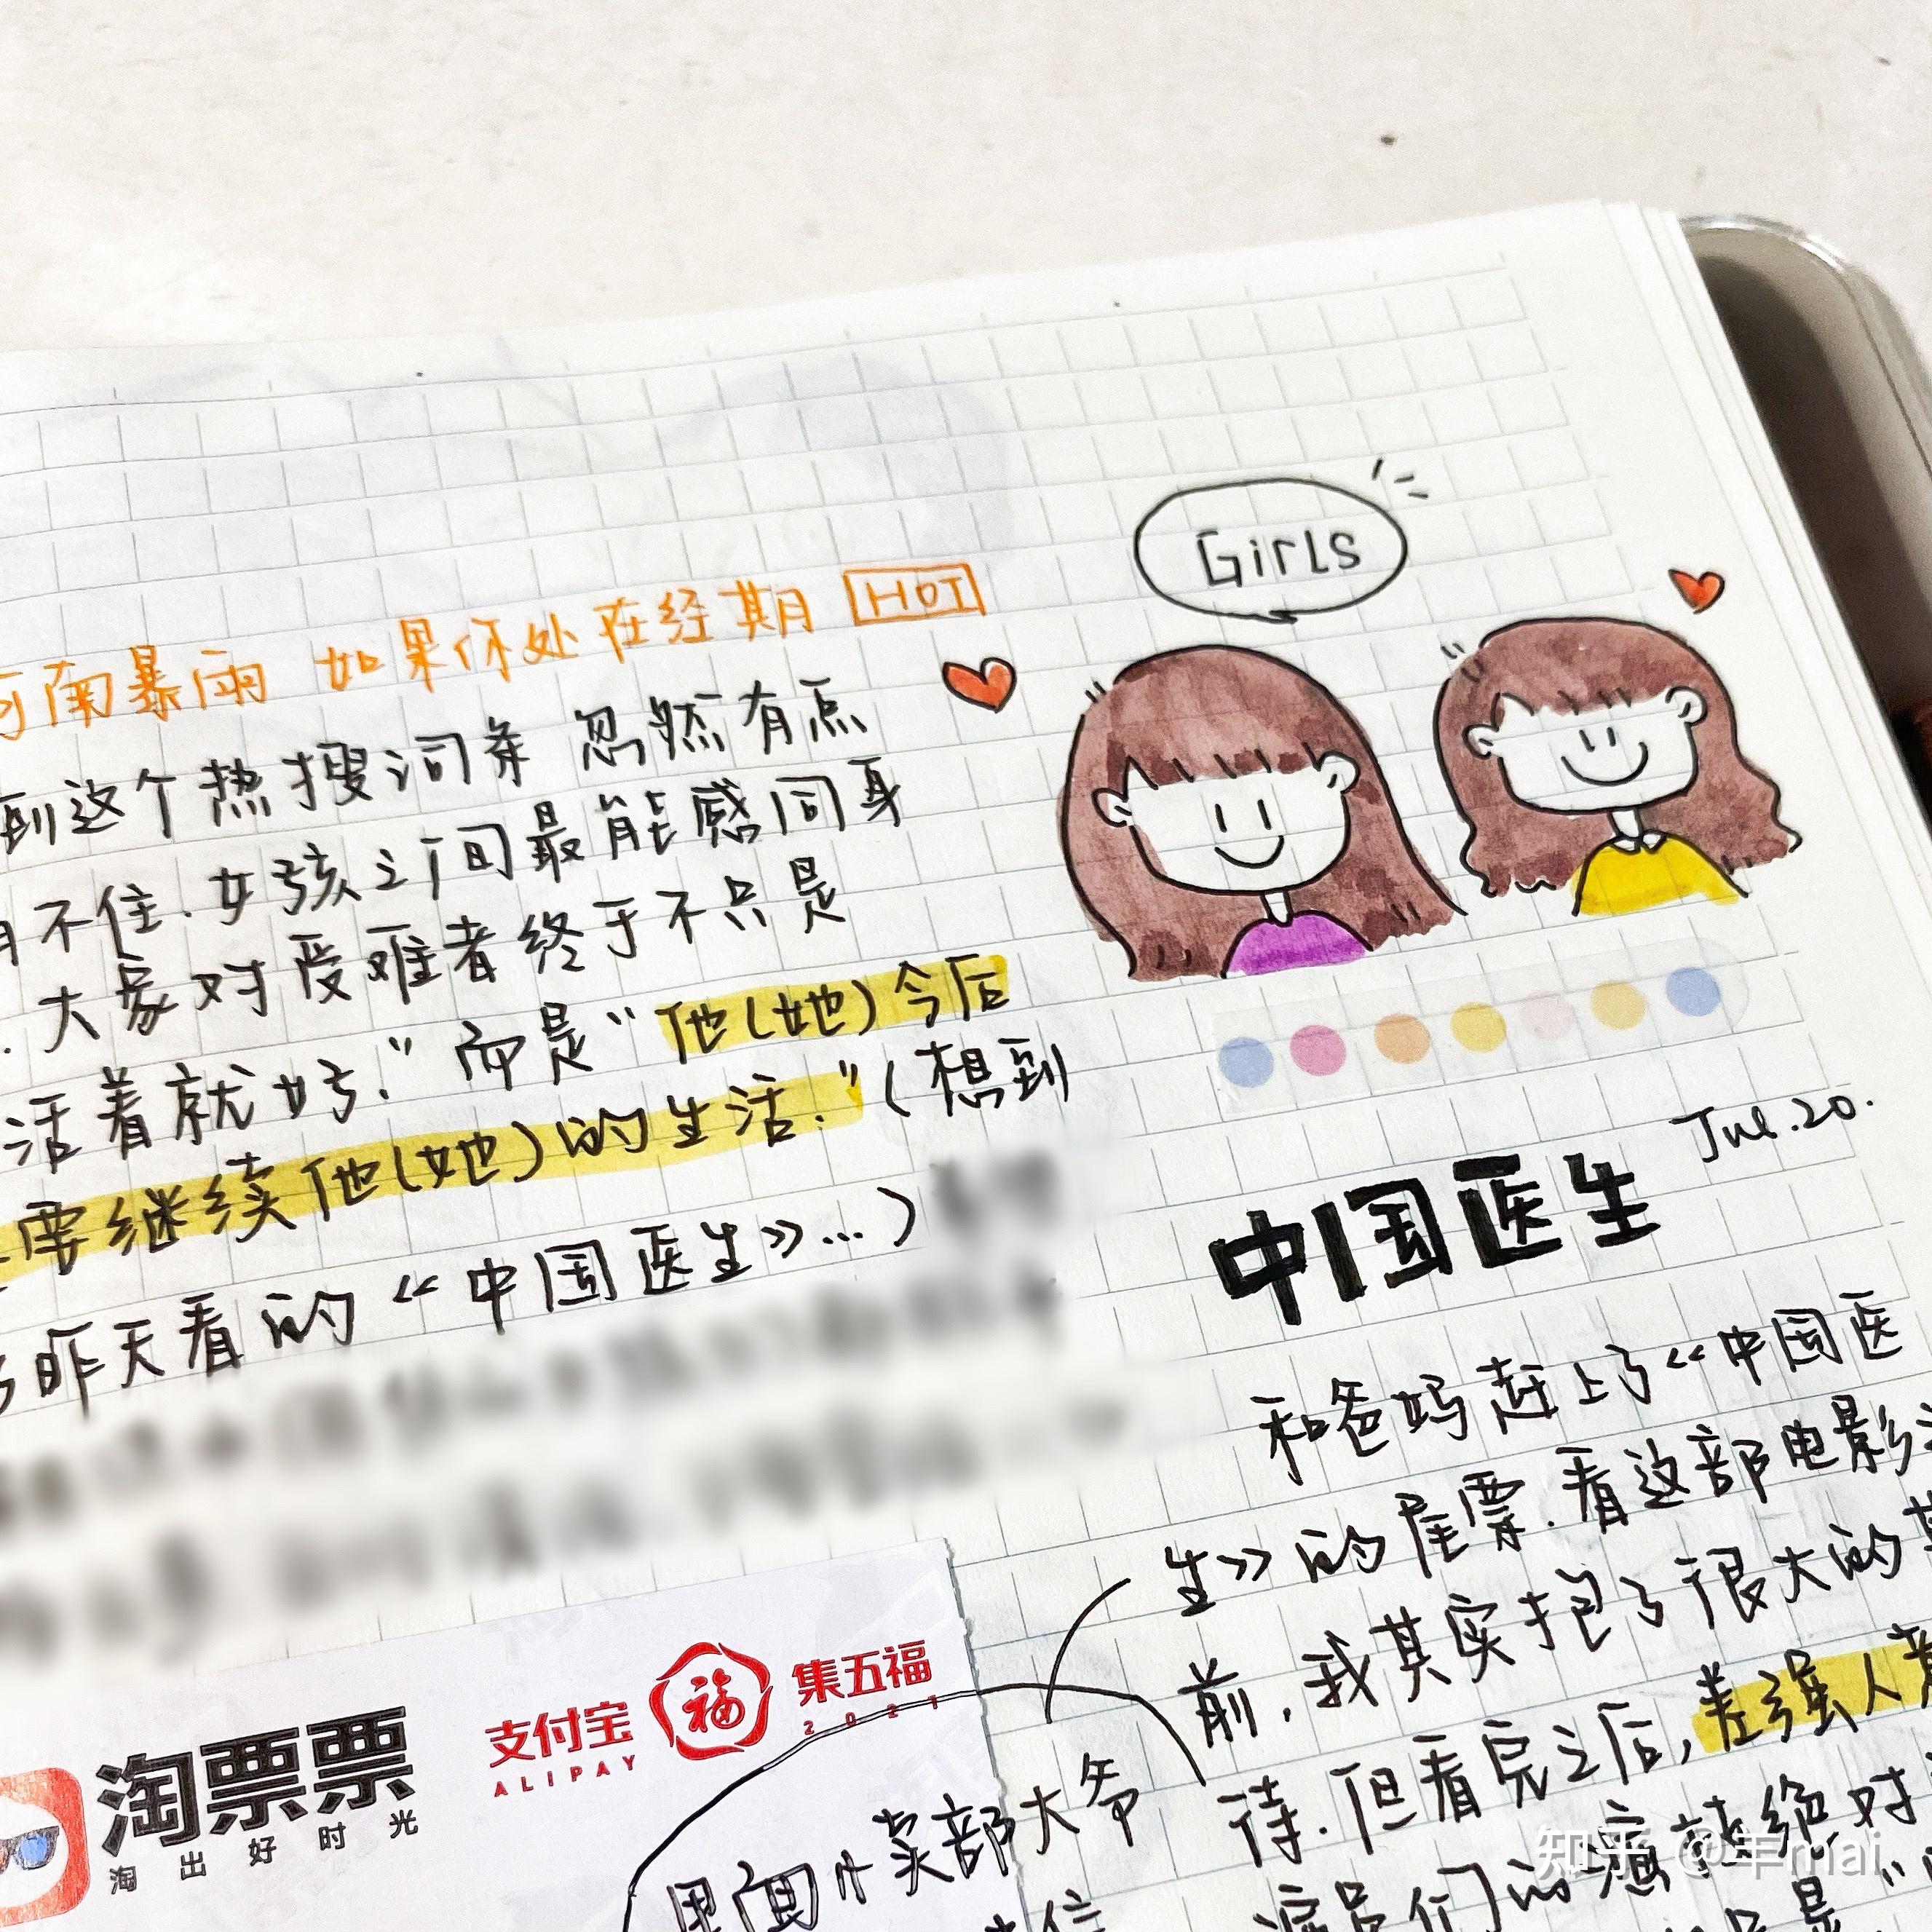 南暴雨 如果你处在经期 HOT
到这个热搜词条 忽然有点
不住.女孩之间最能感同身
.大家对受难者终于不只是
活着就好."而是"他(她)今后
要继续他(她)的生活."(想到
昨天看的《中国医生》...)
淘票票
淘出好时光
支付宝
ALIPAY
福
集五福
2021
里面小卖部大爷
Girls
Jul.20.
中国医生
和爸妈赶上了《中国医
生》的尾票.看这部电影
前,我其实抱了很大的
待.但看完之后,差强人意
演员们的演技绝对
是"
知乎 @羊mai